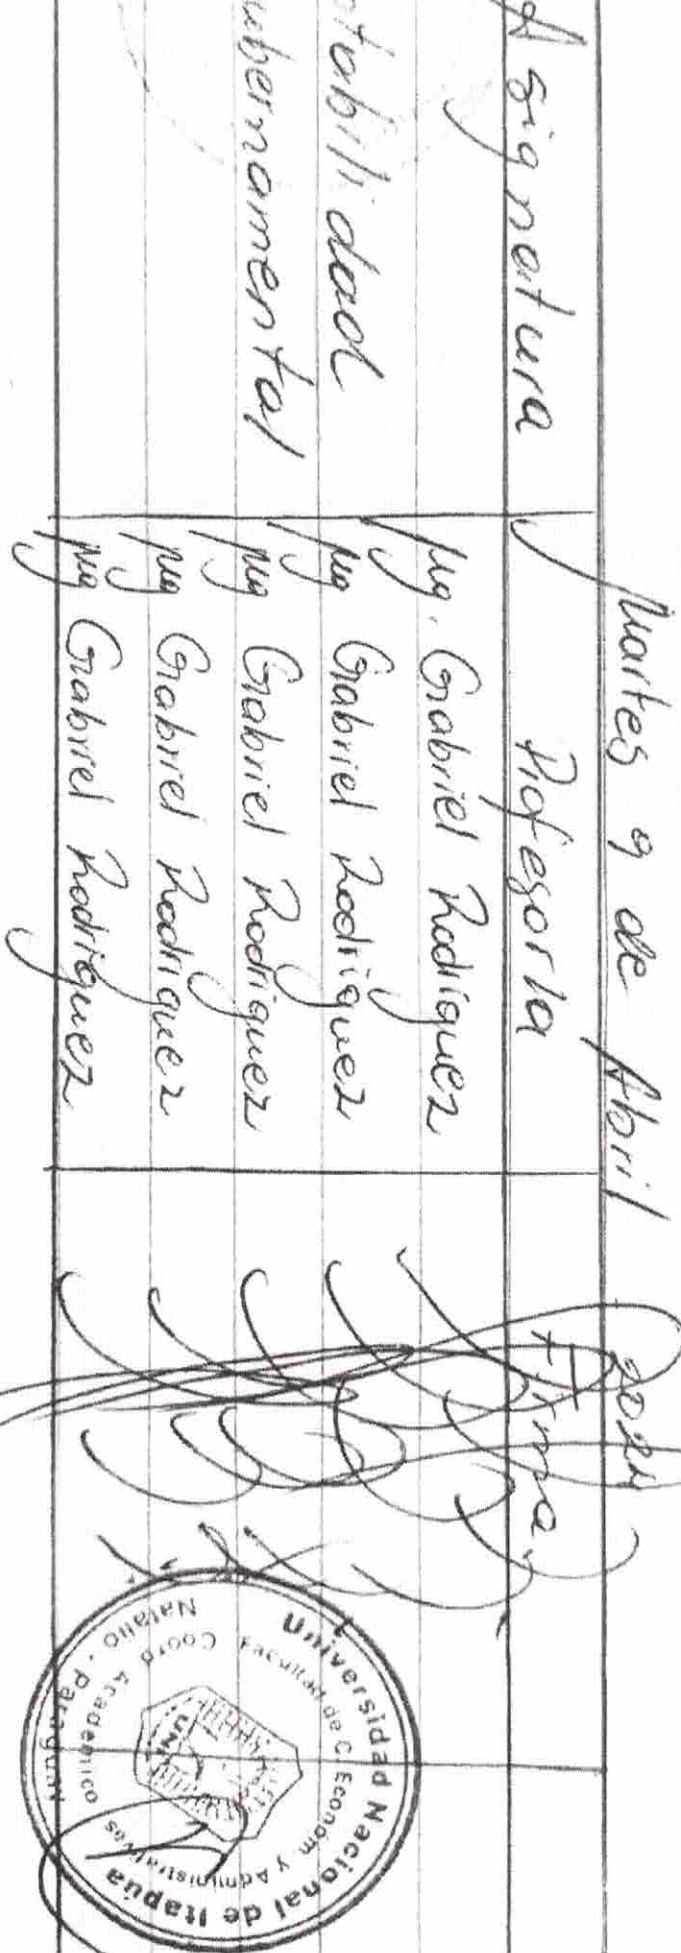 Martes 9 de Abril 2024
Asignatura Profesor/a Firma
Mg. Gabriel Rodríguez
tabilidad Mg Gabriel Rodríguez
ubernamental Mg Gabriel Rodriguez
Mg Gabriel Rodriguez
Mg Gabriel Rodriguez
Universidad Nacional de Itapúa
Facultad de C. Económ y Administrativas
Coord Académico
Natalio - Paraguay
UNI